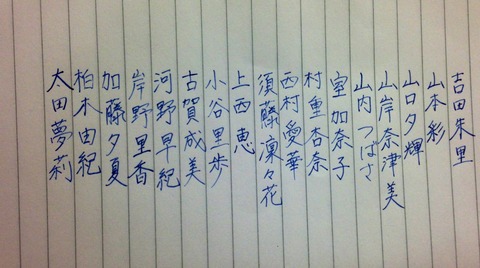 吉田朱里
山本彩
山口夕輝
山岸奈津美
山内つばさ
室加奈子
村重杏奈
西村愛華
須藤凜々花
上西恵
小谷里歩
古賀成美
河野早紀
岸野里香
加藤夕夏
柏木由紀
太田夢莉